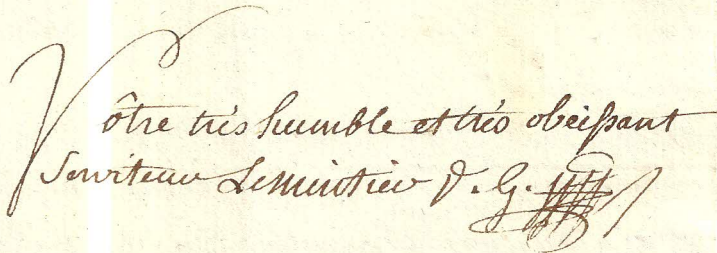 Vôtre trés humble et trés obeissant
Serviteur Lemintier v. G.